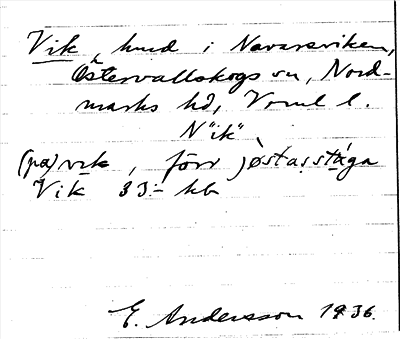 Vik, hmd i Navarsviken,
Östervallskogs sn, Nord-
marks hd, Vrml l.
N"ik"
(pɑ) vik, förr jøstasstɑ́ga
Vik 33:- kb
E. Andersson 1936.